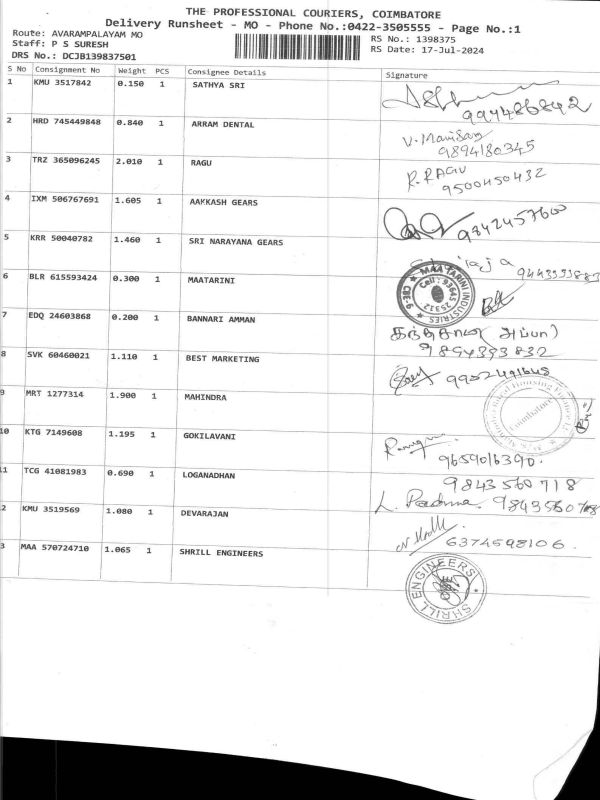 THE PROFESSIONAL COURIERS, COIMBATORE
Delivery Runsheet - MO - Phone No.:0422-3505555 - Page No.:1
Route: AVARAMPALAYAM MO
RS No.: 1398375
Staff: P S SURESH
RS Date: 17-Jul-2024
DRS No.: DCJB139837501
S No Consignment No Weight PCS Consignee Details Signature
1 KMU 3517842 0.150 1 SATHYA SRI
994486842
2 HRD 745449848 0.840 1 ARRAM DENTAL
9894180345
3 TRZ 365096245 2.010 1 RAGU R. RAGU
9500450432
4 IXM 506767691 1.605 1 AAKKASH GEARS 9842457600
5 KRR 50040782 1.460 1 SRI NARAYANA GEARS
6 BLR 615593424 0.300 1 MAATARINI
MAA TARINI INDUSTRIES CBE-9 Cell: 93645 25312
7 EDQ 24603868 0.200 1 BANNARI AMMAN
9894393832
8 SVK 60460021 1.110 1 BEST MARKETING
9 MRT 1277314 1.900 1 MAHINDRA
Coimbatore
10 KTG 7149608 1.195 1 GOKILAVANI
9659016390.
11 TCG 41081983 0.690 1 LOGANADHAN 9843560718
L. Padma 9843560718
2 KMU 3519569 1.080 1 DEVARAJAN
6374598106.
3 MAA 570724710 1.065 1 SHRILL ENGINEERS
SHRILL ENGINEERS